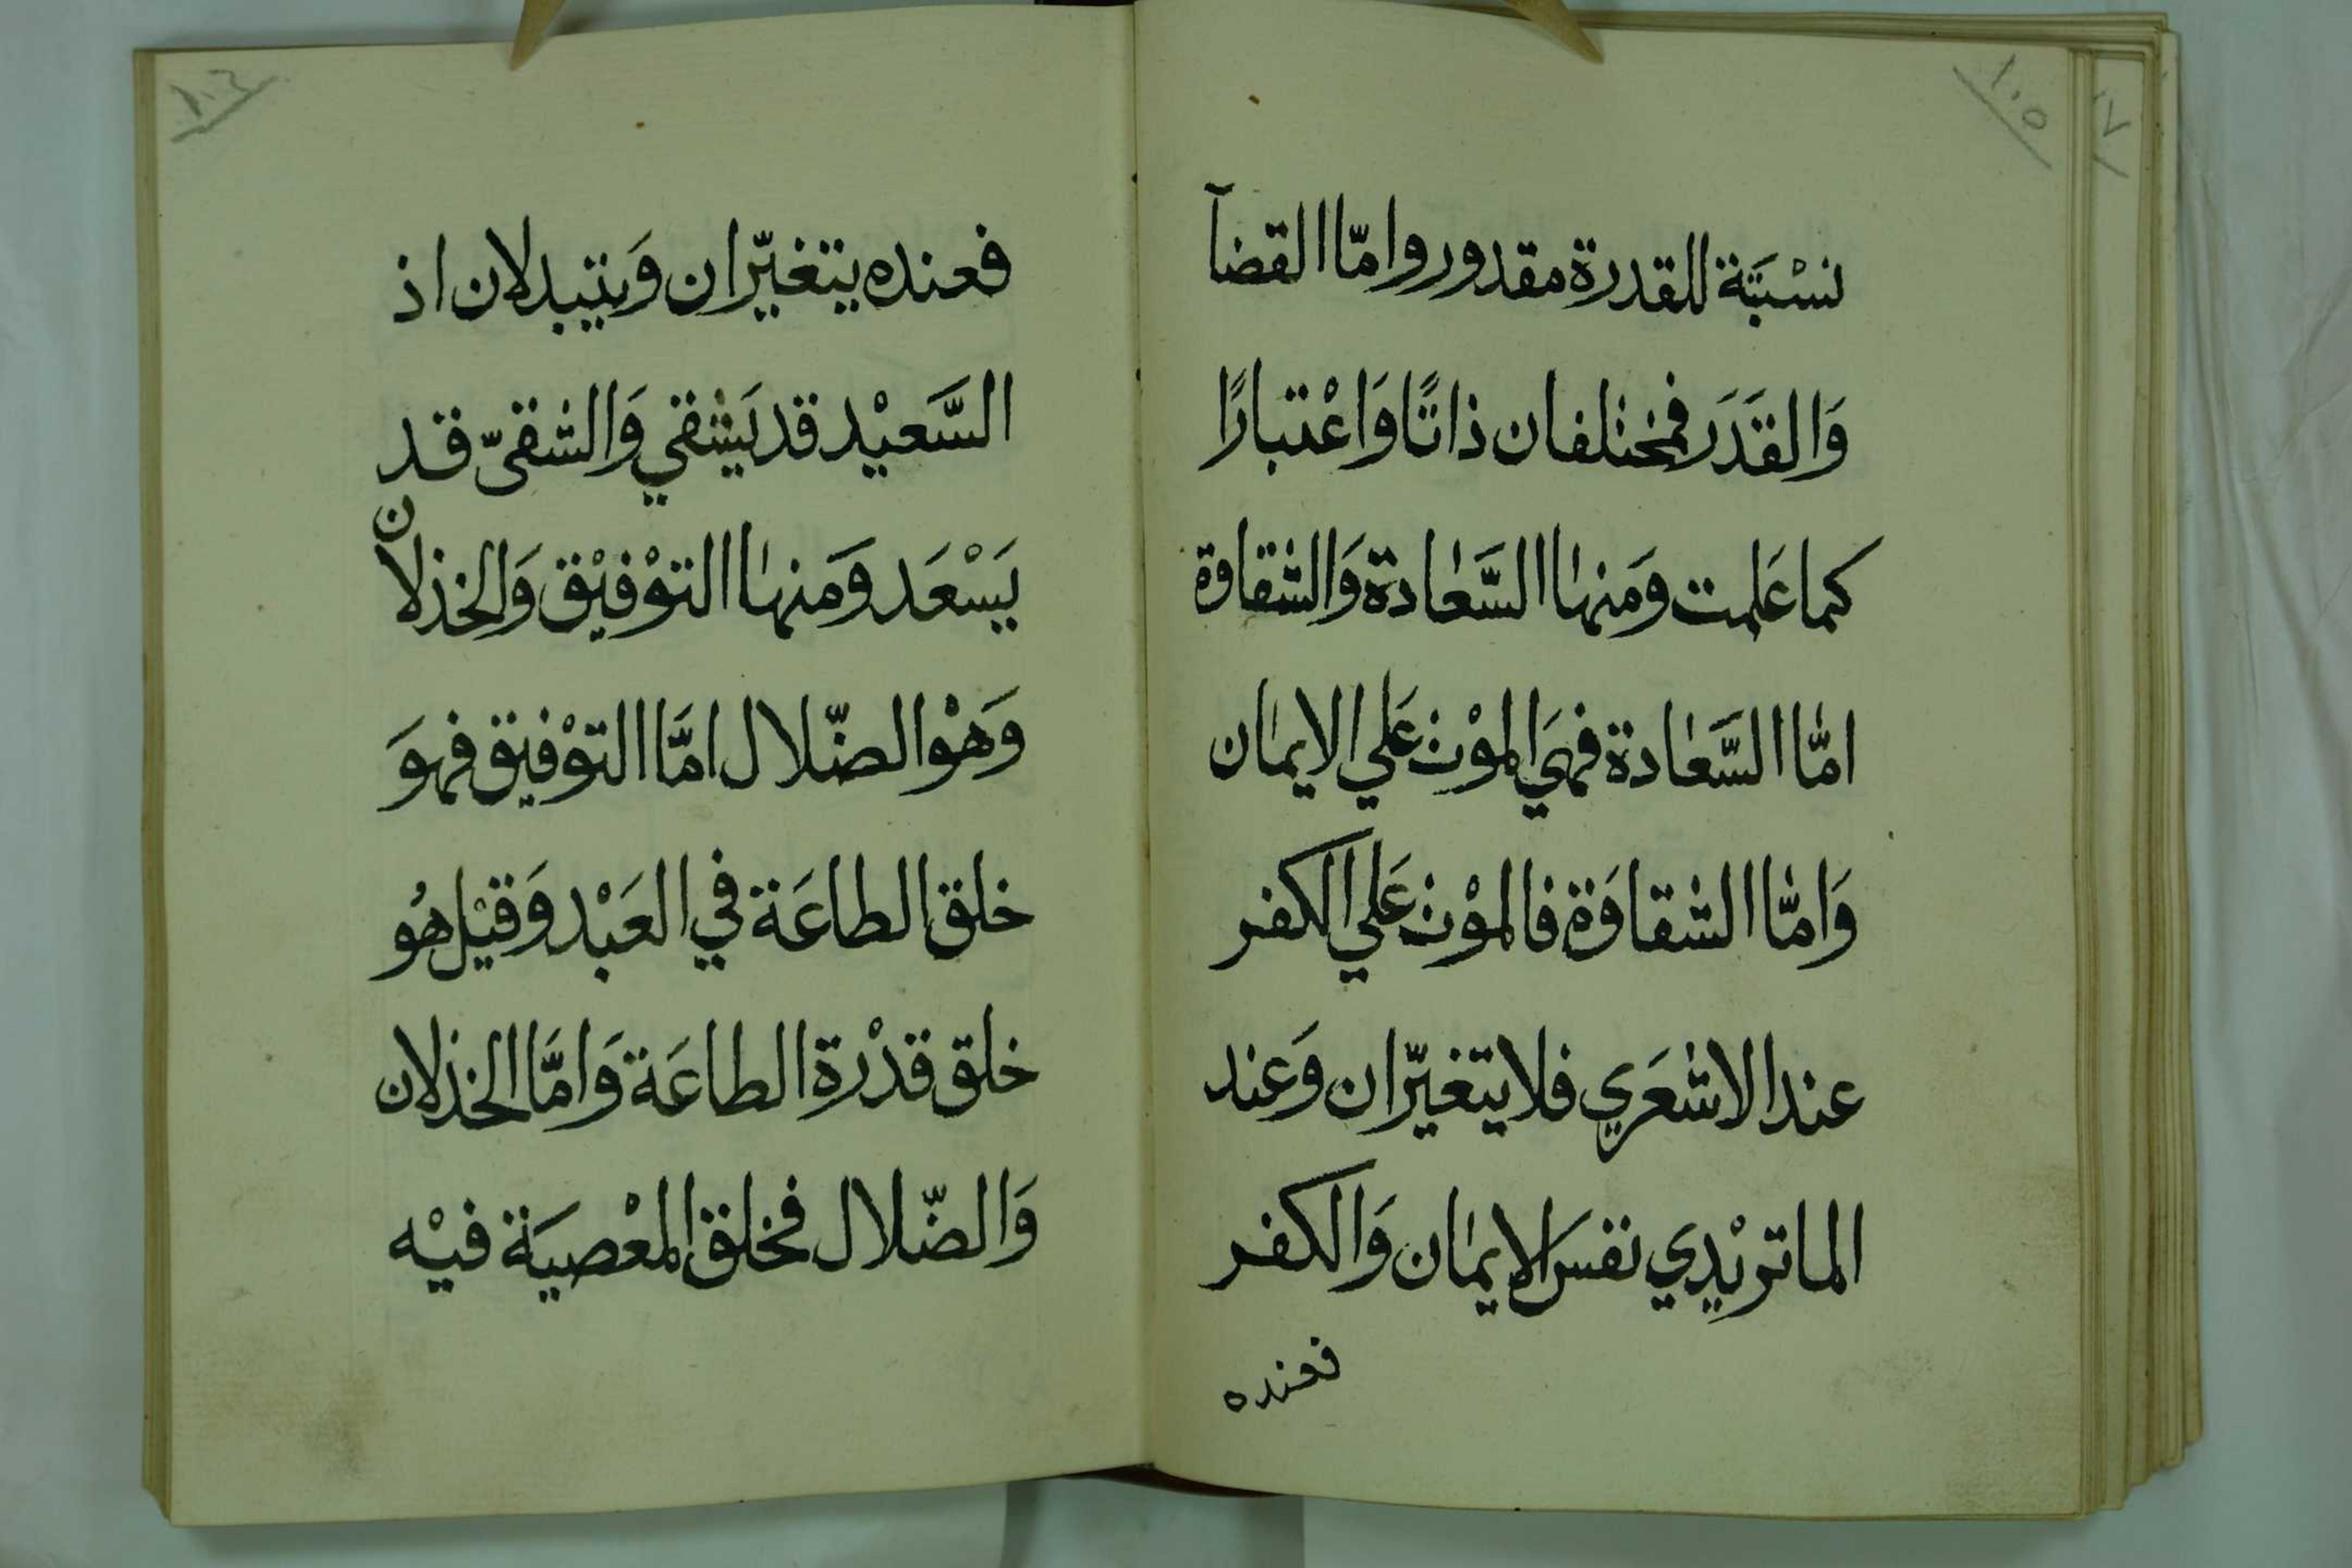 ١٠٥
نسْبَتة للقدرة مقدور وامّا القضآ
وَالقَدَر فمختلفان ذاتًا وَاعْتبارًا
كما عَلمت وَمنها السَّعادة وَالشقاوة
امّا السَّعادة فهيَ الموْت عَلي الايمان
وَامّا الشقاوَة فالموْت عَلي الكفر
عند الاشعَري فلا يتغيّران وَعند
الماتريْدي نفسَ الايمان وَالكفر
فعنده
١٠٦
فعنده يتغيّران وَيتبدلان اذ
السَّعيْد قد يَشقي وَالشقىّ قد
يَسْعَد وَمنها التوْفيْق وَالخذلان
وَهوْ الضّلال امَّا التوْفيق فهوَ
خلق الطاعَة في العَبْد وَقيْل هُو
خلق قدْرة الطاعَة وَامَّا الخذلان
وَالضّلال فخلق المعْصيَة فيْه